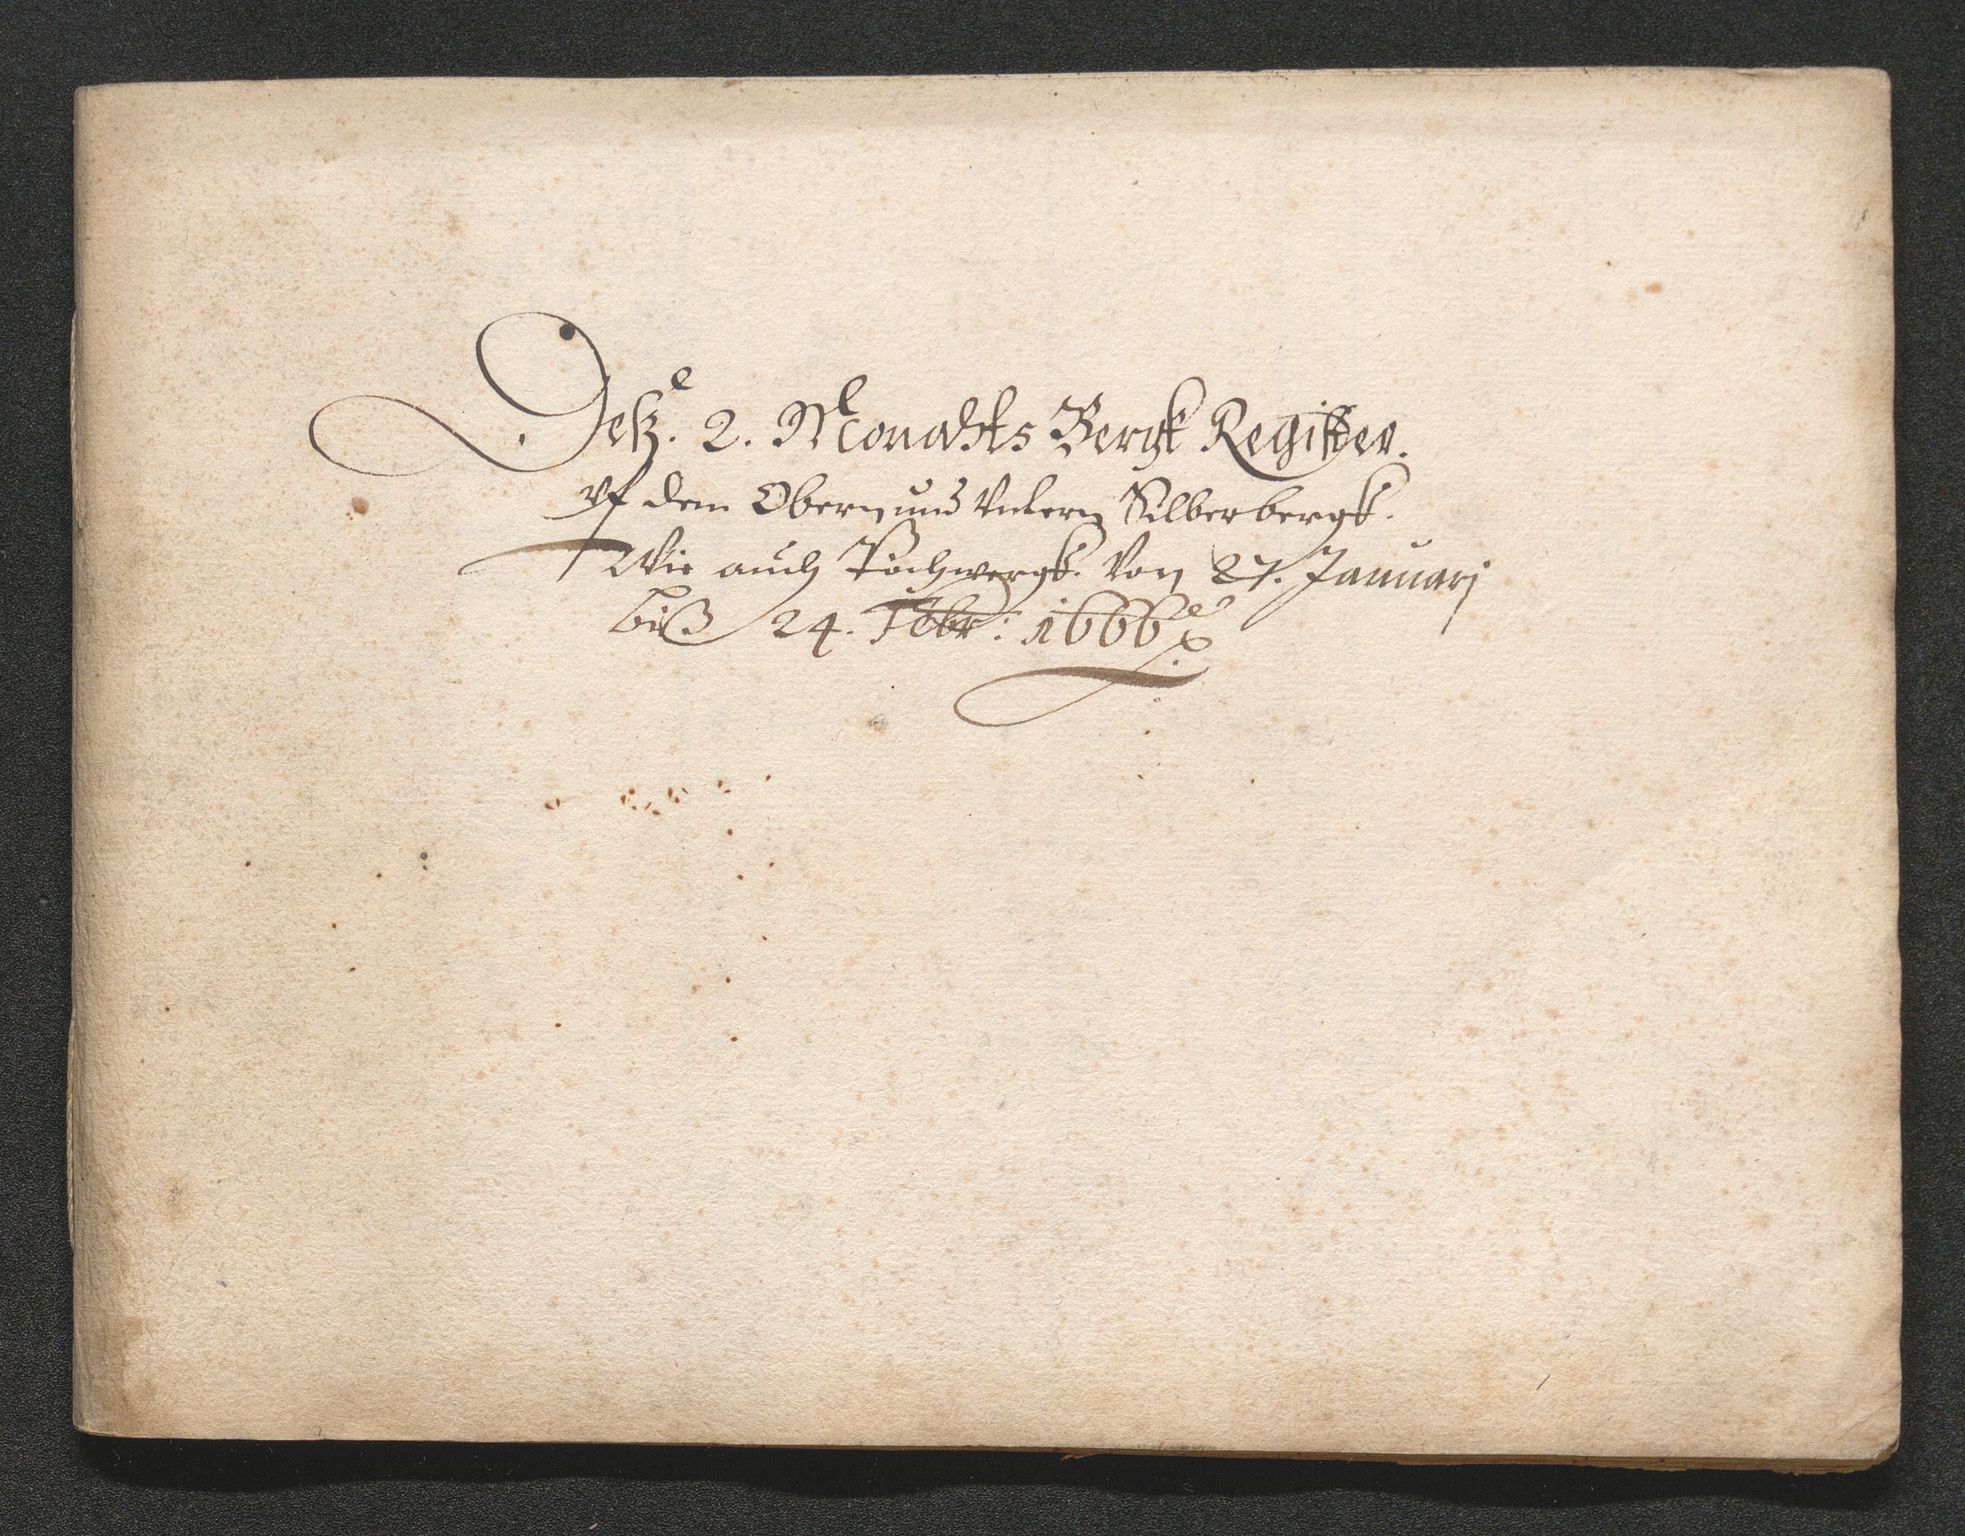 Deß. 2. Monahts Bergk Register.
vf dem Obern und Vntern Silberbergk.
Wie auch Pochwergk. Von 27. Januarj
biß 24. Febr: 1666